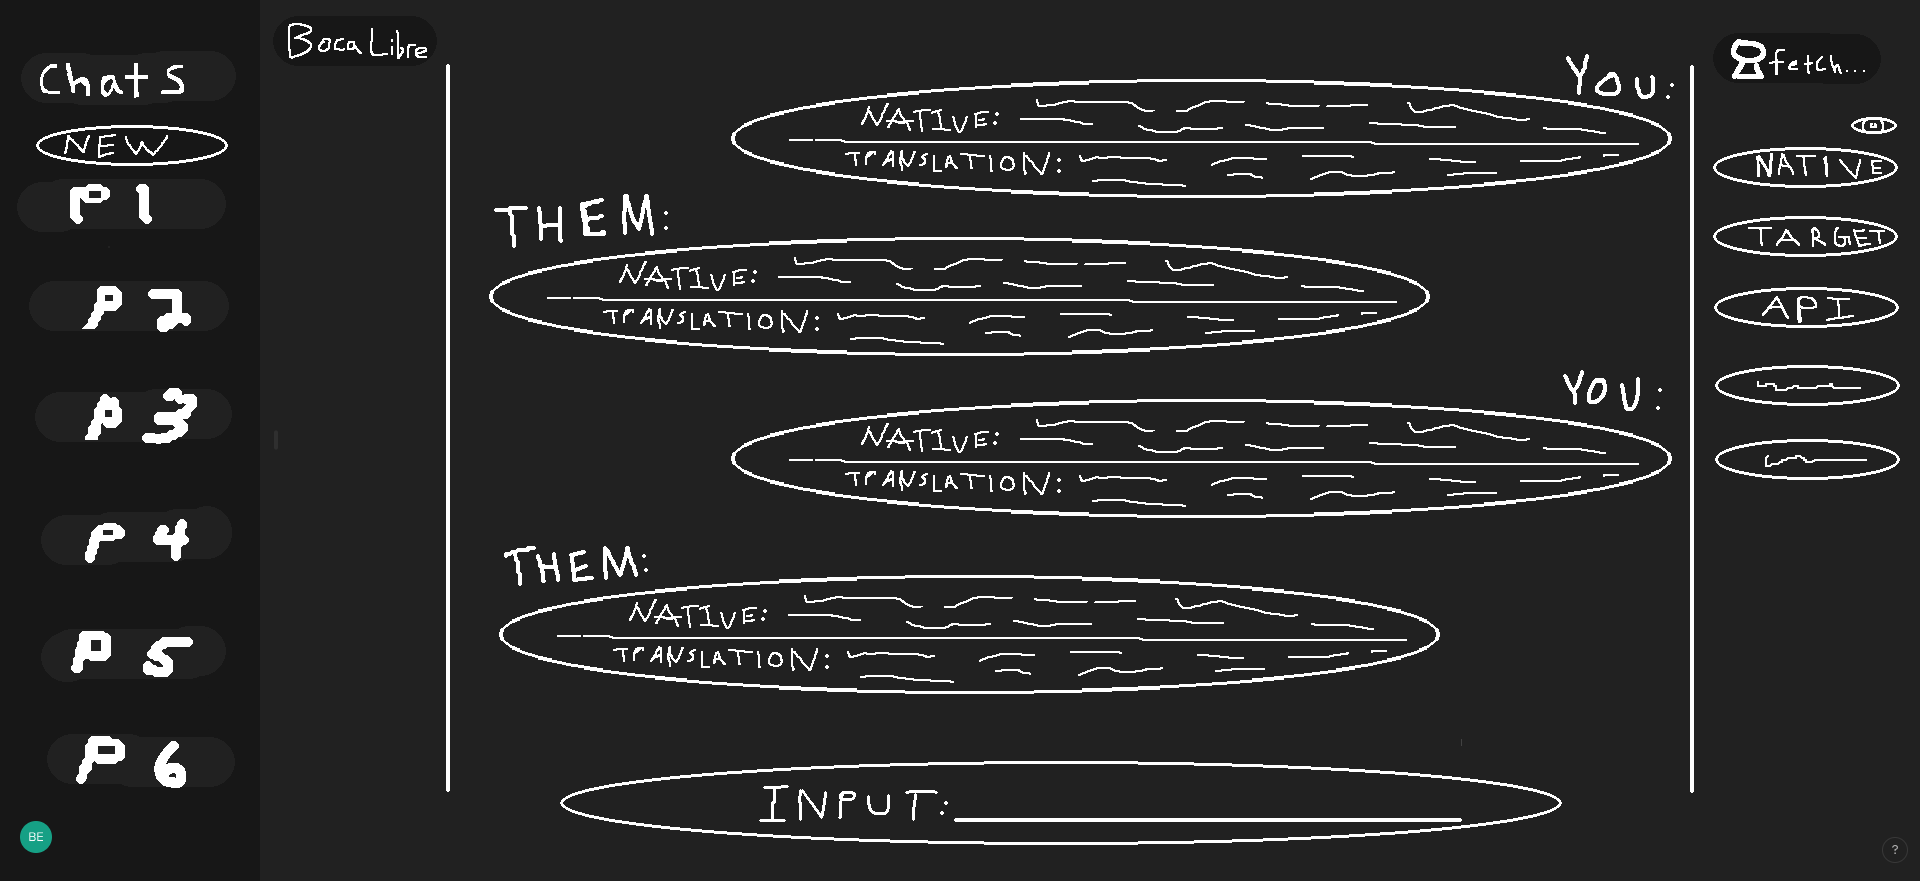 Chats
NEW
P 1
P 2
P 3
P 4
P 5
P 6
BE
Boca Libre
YOU:
NATIVE:
TRANSLATION:
THEM:
NATIVE:
TRANSLATION:
YOU:
NATIVE:
TRANSLATION:
THEM:
NATIVE:
TRANSLATION:
INPUT:
fetch...
NATIVE
TARGET
API
?